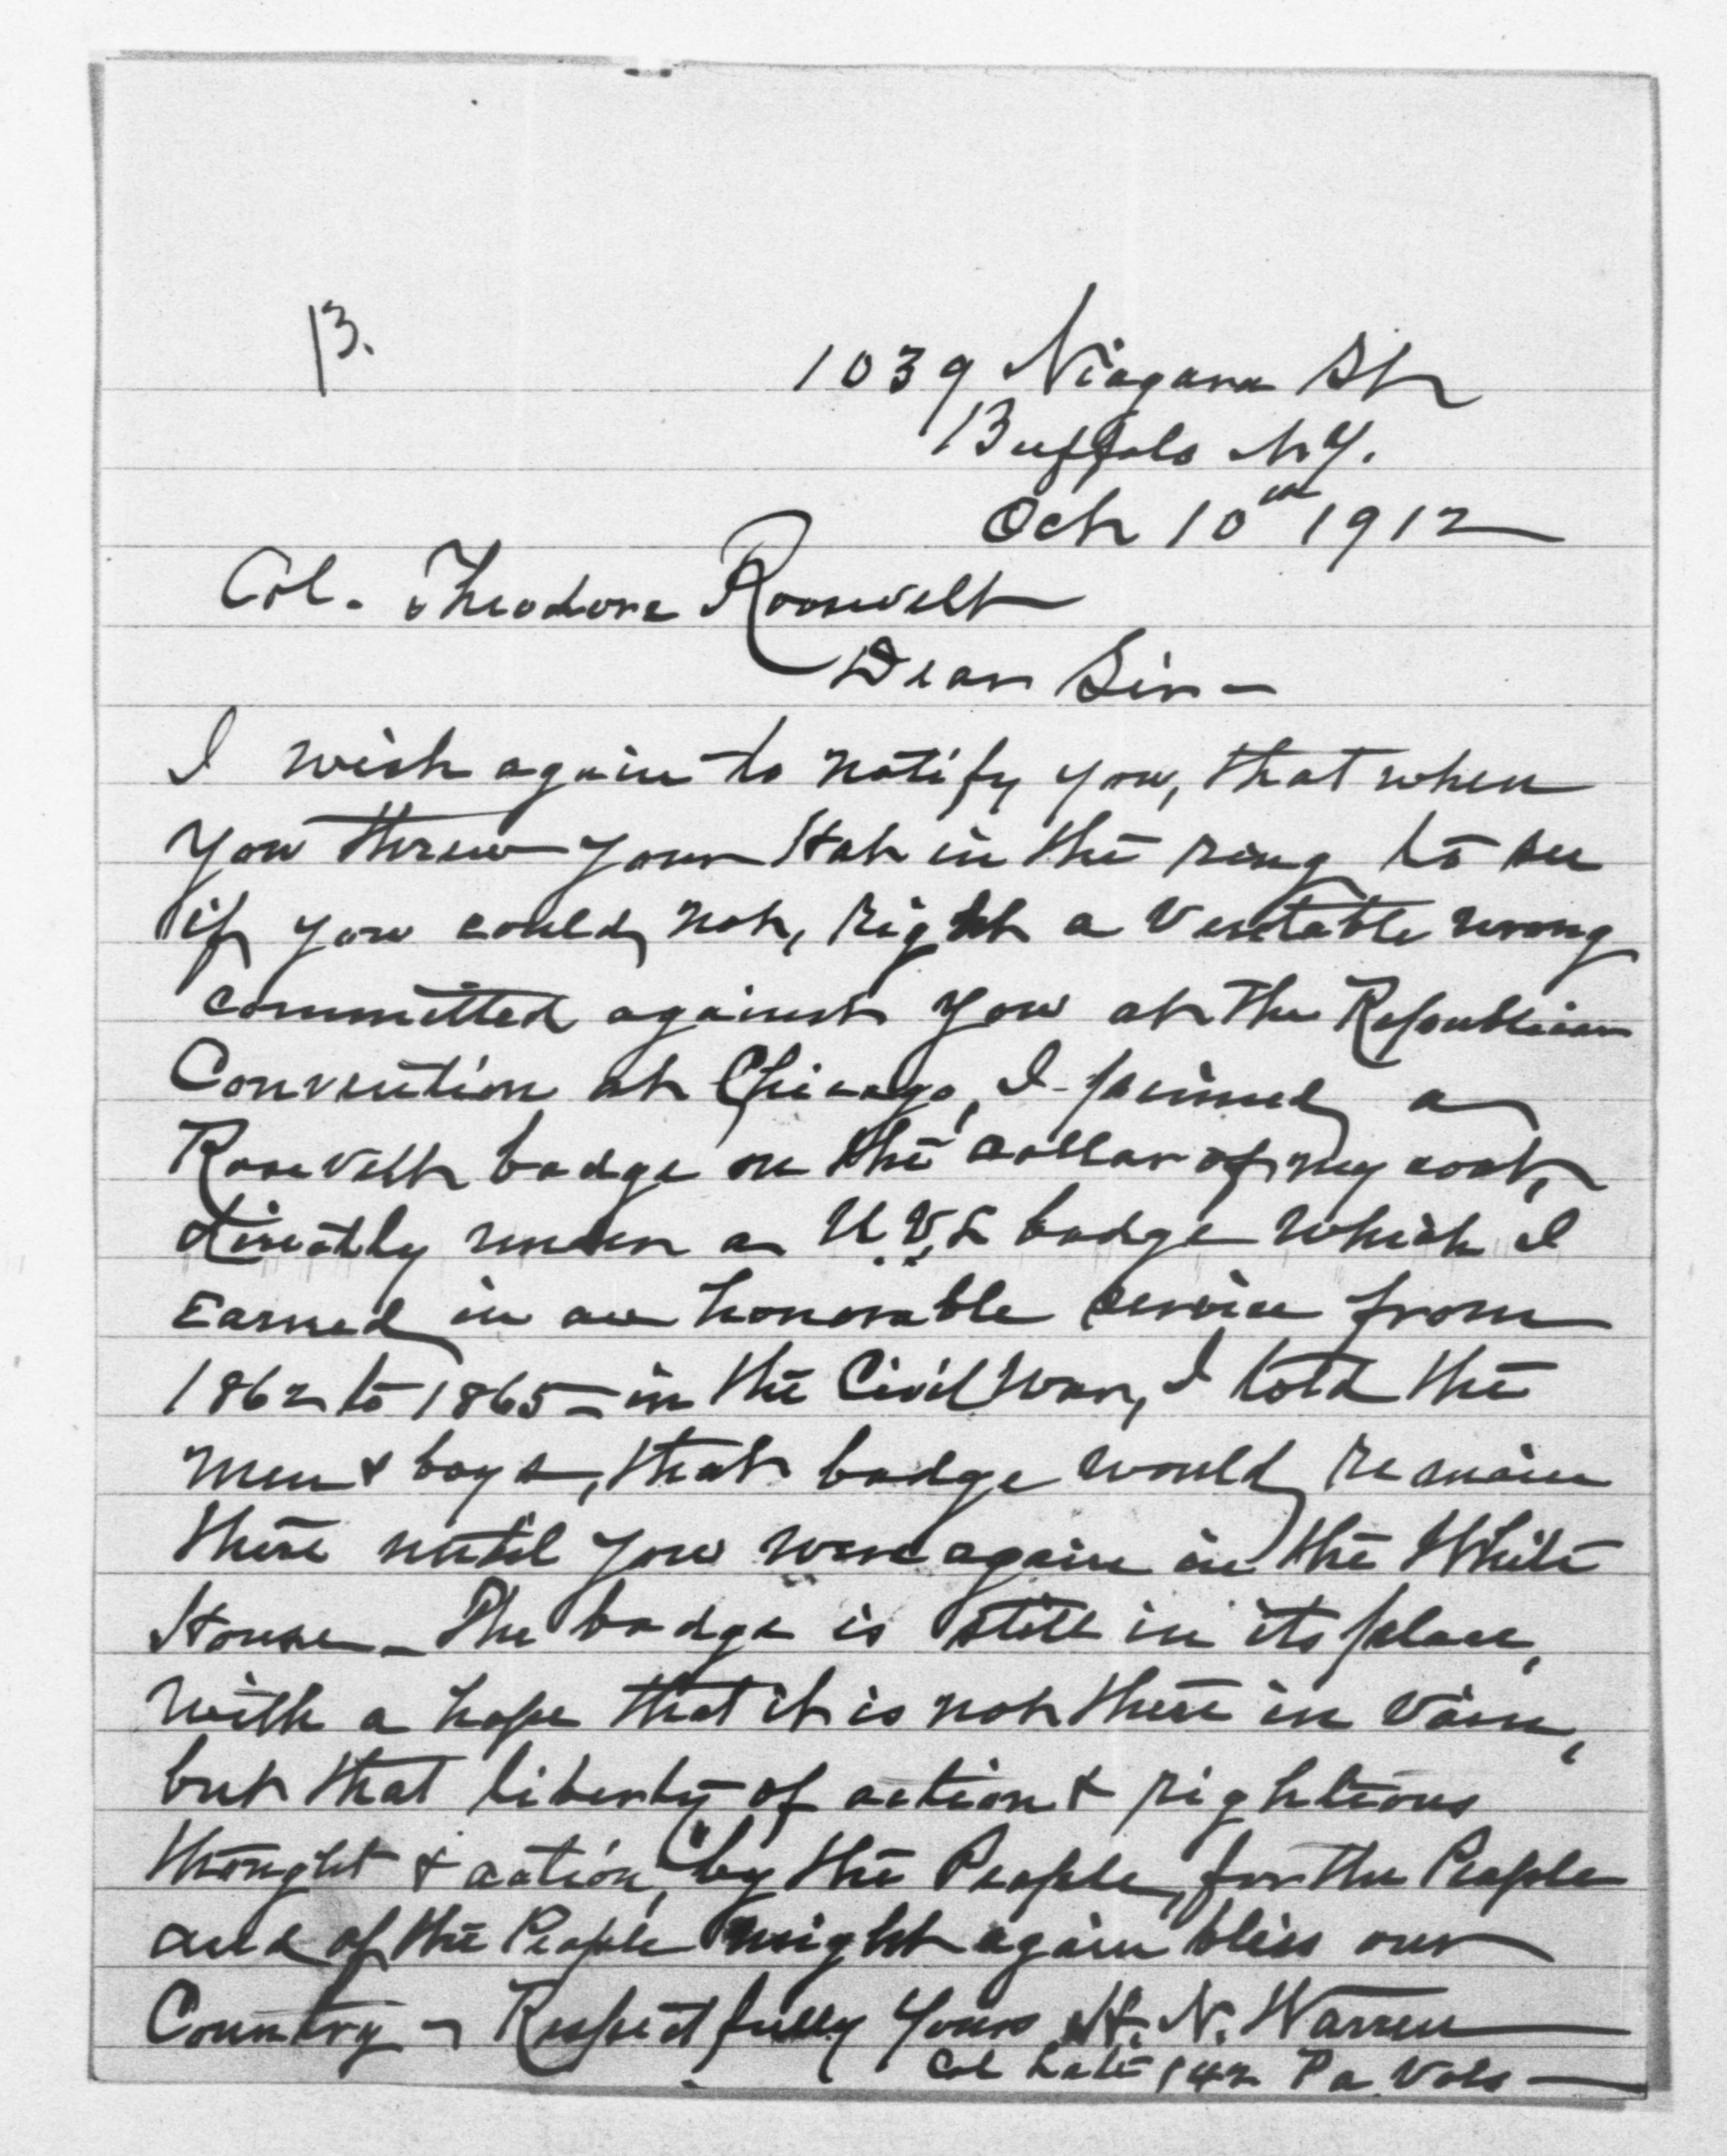 B.
1039 Niagara St
Buffalo N.Y.
Oct 10th 1912
Col. Theodore Roosevelt
Dear Sir -
I wish again to notify you, that when
you threw your Hat in the ring to see
if you could not, right a veritable wrong
committed against you at the Republican
Convention at Chicago, I pinned a
Roosevelt badge on the collar of my coat,
directly under a U.V.L badge which I
Earned in an honorable service from
1862 to 1865 - in the Civil War, I told the
men & boys, that badge would remain
there until you were again in the White
House - The badge is still in its place,
with a hope that it is not there in vain,
but that liberty of action & rightious
thought & action, "by the People, for the People
and of the People might again bless our
Country - Respectfully Yours H. N. Warren
Col Late 142 Pa. Vols -